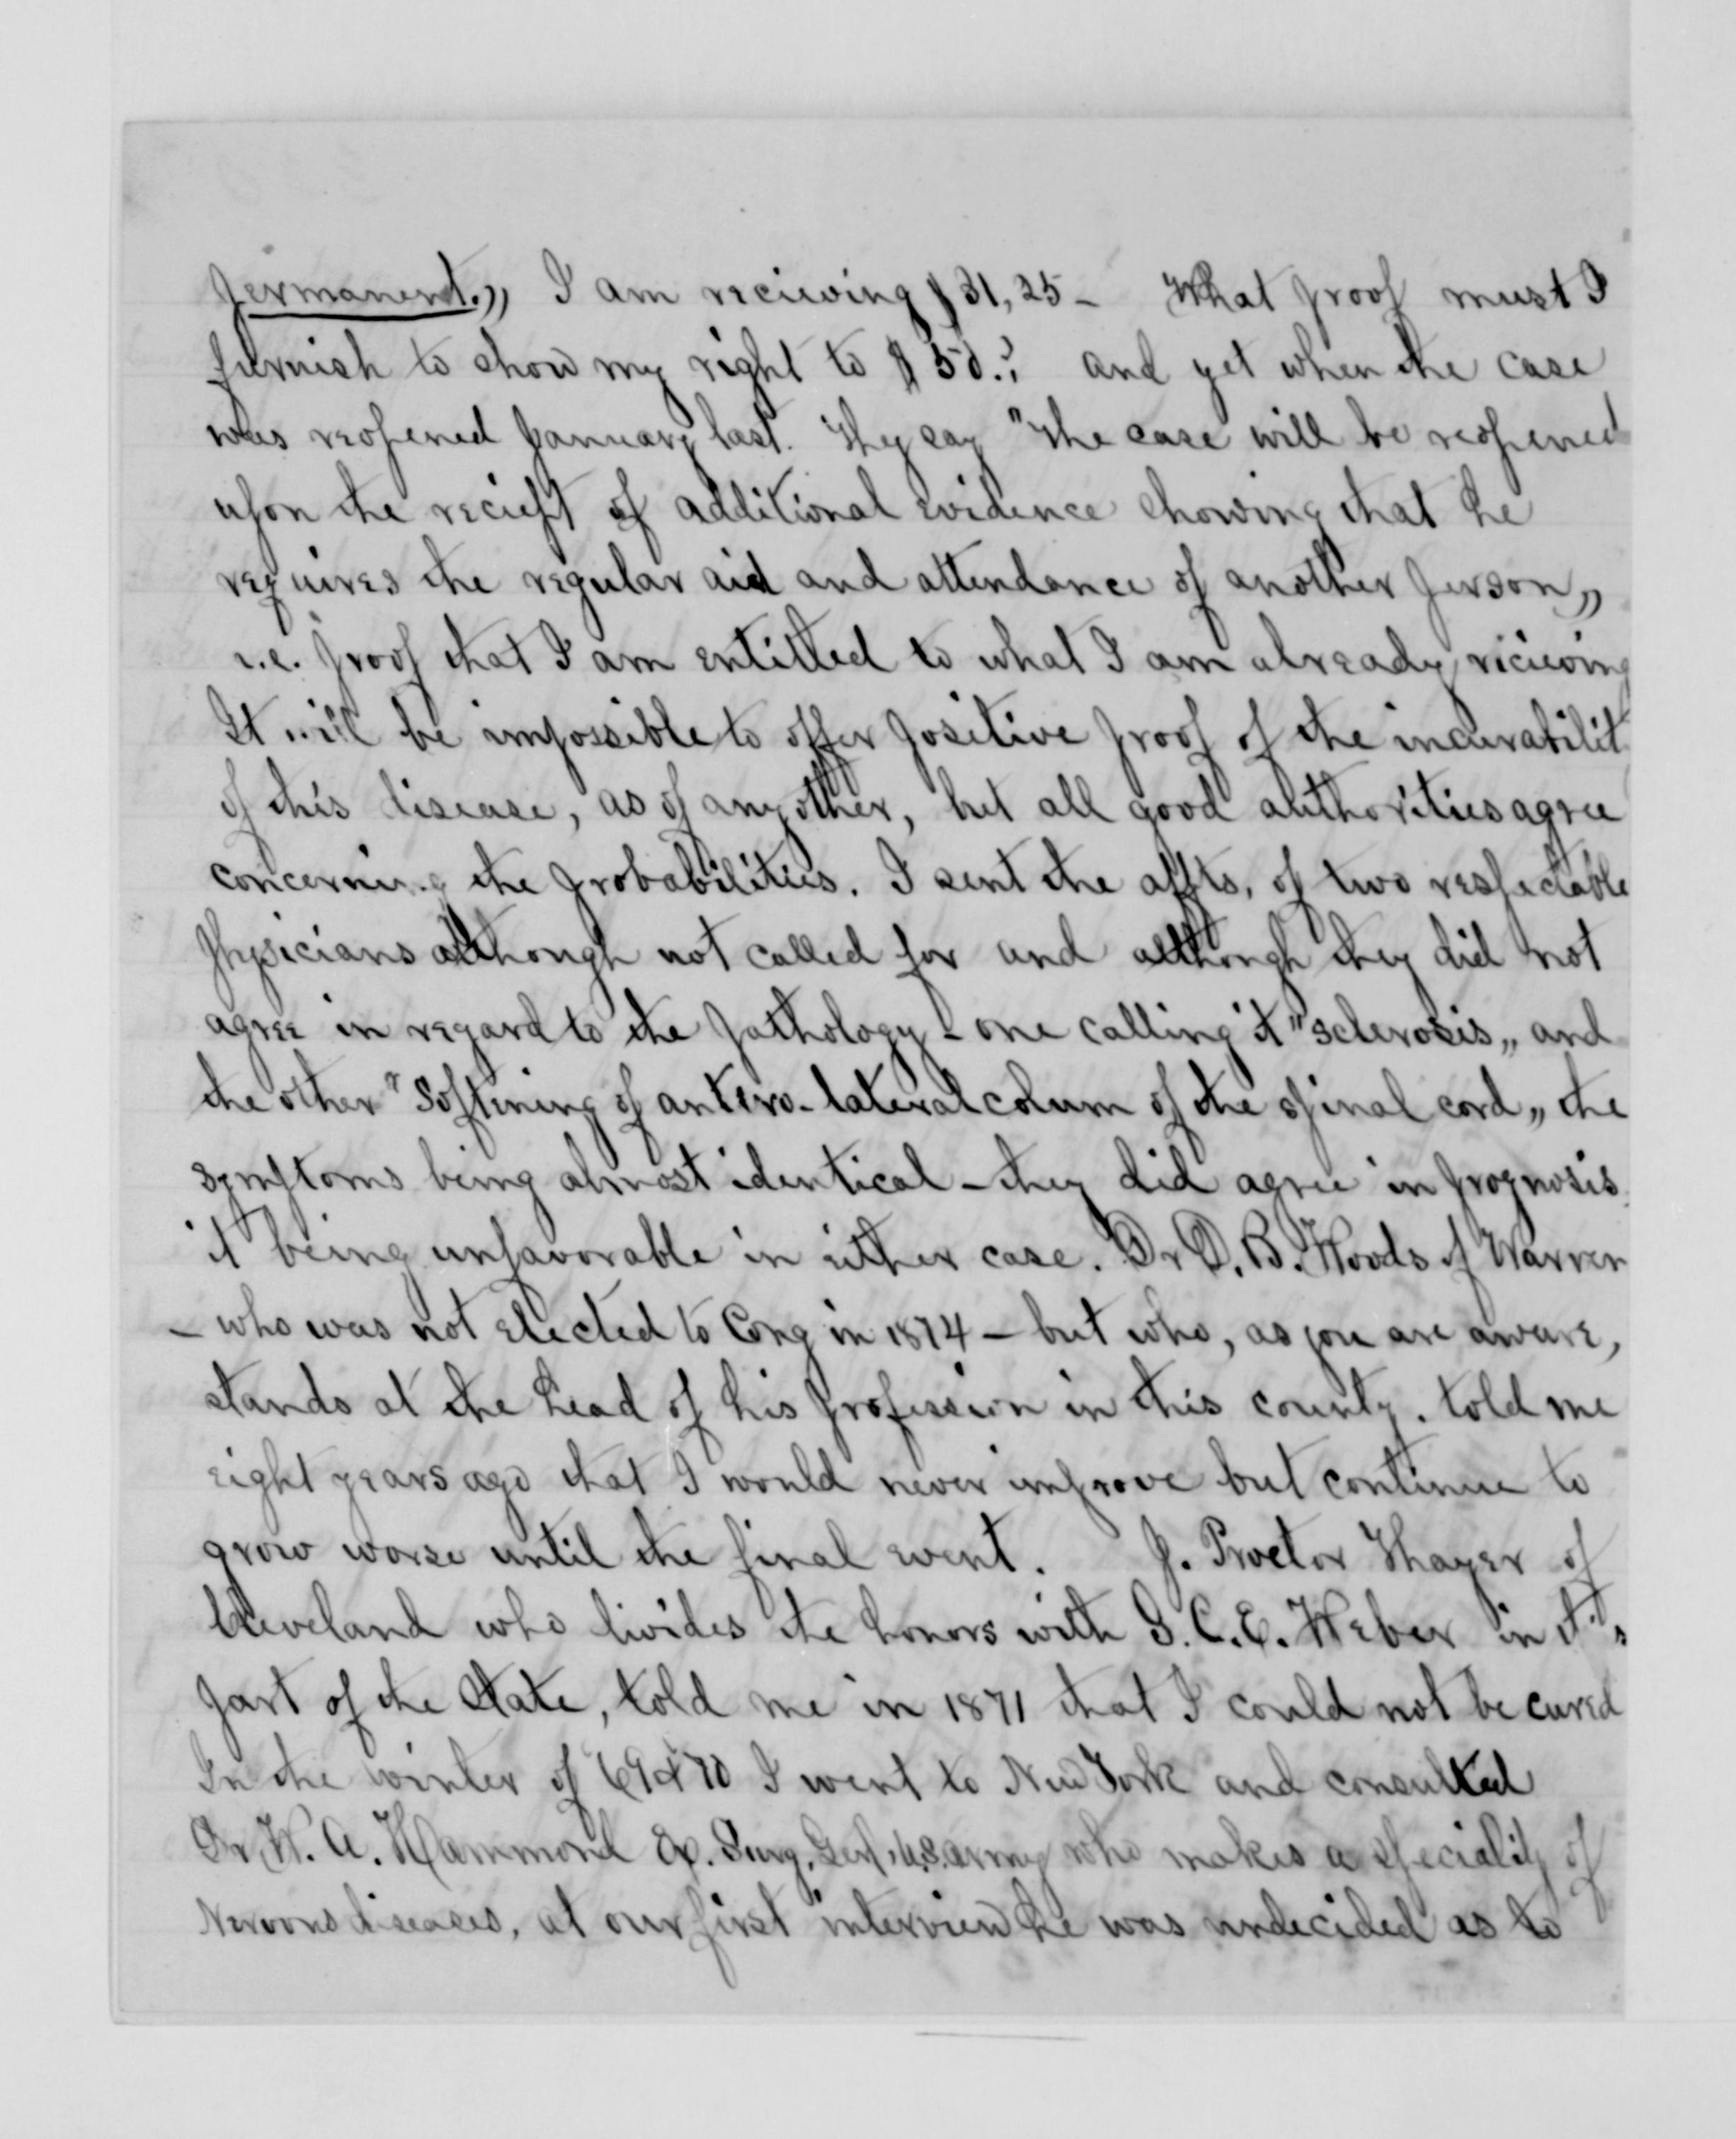 permanent." I am recieving $31,25 - What proof must I
furnish to show my right to $50.? and yet when the case
was reopened January last. They say "The case will be reopened
upon the reciept of additional evidence showing that he
requires the regular aid and attendance of another person"
i.e. proof that I am entitled to what I am already recieving
It will be impossible to offer positive proof of the incurabilit
of this disease, as of any other, but all good authorities agree
concerning the probabilities. I sent the affts, of two respectable
physicians although not called for and although they did not
agree in regard to the pathology - one calling it "sclerosis" and
the other "Softening of antero-lateral colum of the spinal cord" the
symptoms being almost identical - they did agree in prognosis
it being unfavorable in either case. Dr D. B. Woods of Warren
- who was not elected to Cong in 1874 - but who, as you are aware,
stands at the head of his profession in this county. told me
eight years ago that I would never improve but continue to
grow worse until the final event. J. Proctor Thayer of
Cleveland who divides the honors with G. C. E. Weber in this
part of the State, told me in 1871 that I could not be cured
In the winter of '69 & 70 I went to New York and consulted
Dr. W. A. Hammond Ex. Surg. Genl. U.S. army who makes a speciality of
Nervous diseases, at our first interview he was undecided as to